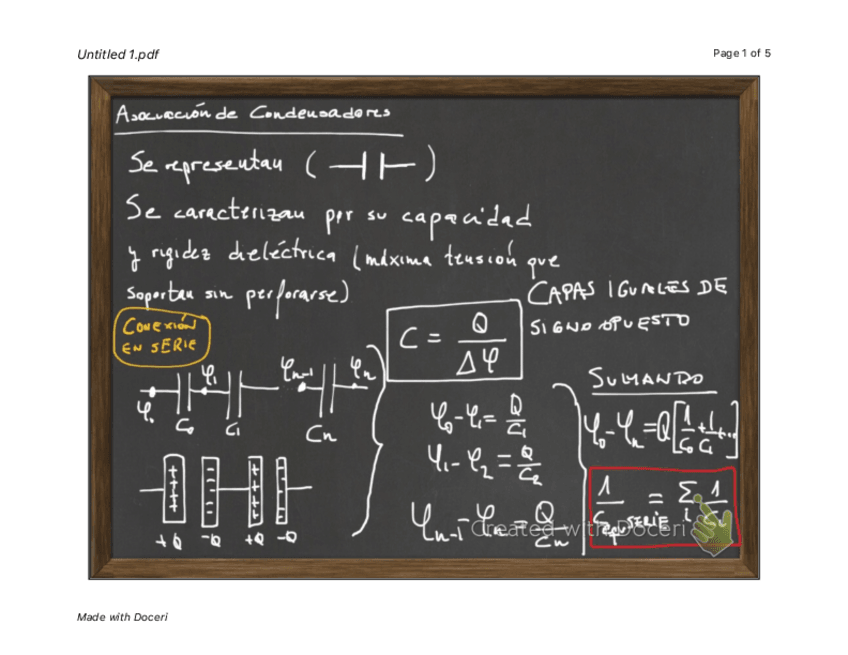 Untitled 1.pdf
Page 1 of 5
Asociación de Condensadores
Se representan ( )
Se caracterizan por su capacidad
y rigidez dieléctrica (máxima tensión que
soportan sin perforarse)
CAPAS IGUALES DE
SIGNO OPUESTO
CONEXIÓN
EN SERIE
C = Q / Δφ
φ₀ φ₁ φn-1 φn
C₀ C₁ Cn
+Q -Q +Q -Q
φ₀-φ₁ = Q/C₁
φ₁-φ₂ = Q/C₂
φn-1-φn = Q/Cn
SUMANDO
φ₀-φn = Q[1/C₀ + 1/C₁ + ...]
1/Cequ SERIE = Σi 1/Ci
Created with Doceri
Made with Doceri